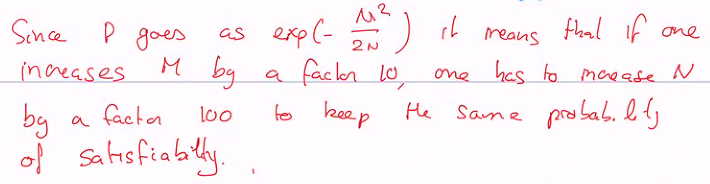 Since P goes as exp(- M²/2N) it means that if one
increases M by a factor 10, one has to increase N
by a factor 100 to keep the same probability
of satisfiability.